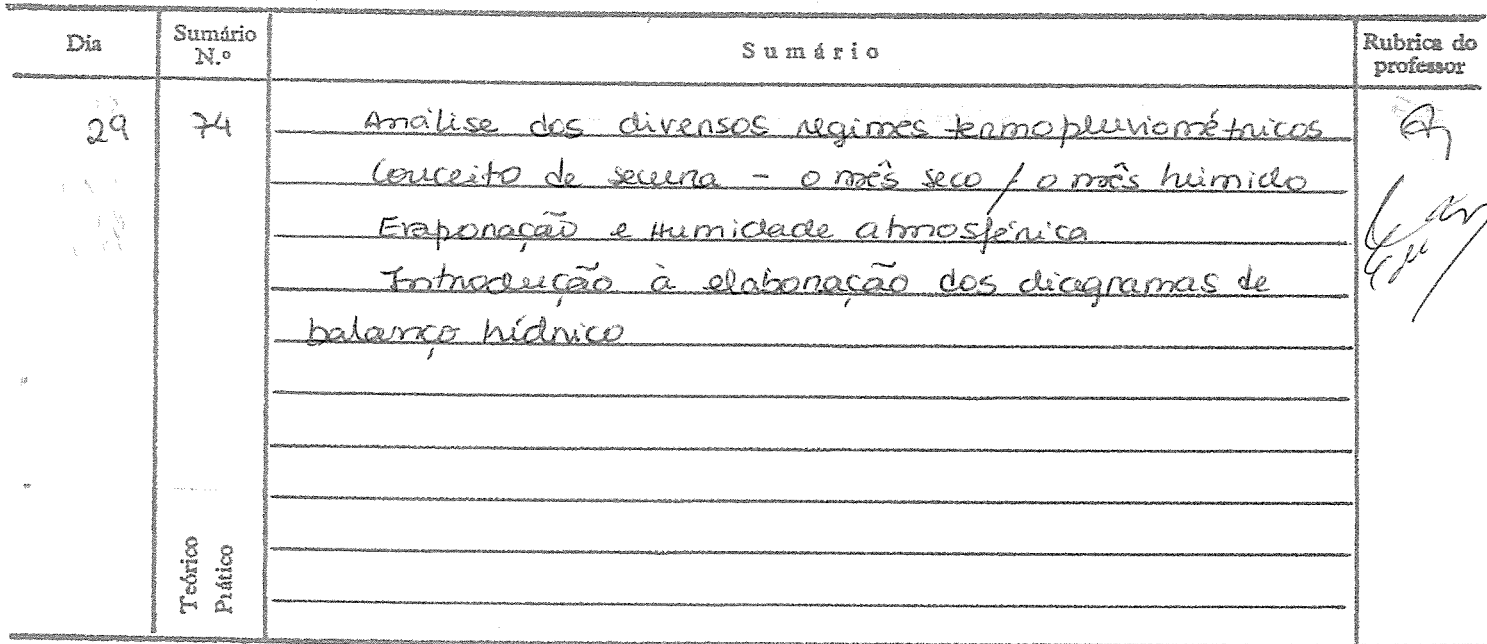 Dia Sumário N.º Sumário Rubrica do professor
29 74 Análise dos diversos regimes termopluviométricos
Conceito de secura - o mês seco / o mês húmido
Evaporação e Humidade atmosférica
Introdução à elaboração dos diagramas de
balanço hídrico
Teórico
Prático